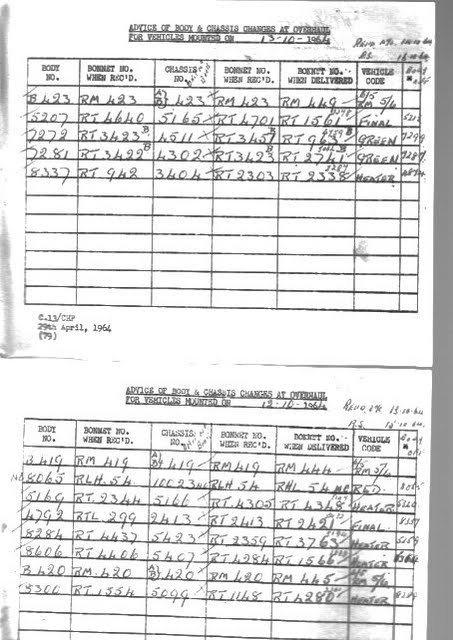 ADVICE OF BODY & CHASSIS CHANGES AT OVERHAUL
FOR VEHICLES MOUNTED ON 13-10-1964
BODY NO. BONNET NO. WHEN REC'D. CHASSIS NO. BONNET NO. WHEN REC'D. BONNTT NO. WHEN DELIVERED VEHICLE CODE
B423 RM 423 423 RM 423 RM 449 RM 5/6
5207 RT 4640 5165 RT 4701 RT 1561 FINAL
7272 RT 3423 B 4511 RT 3457 B RT 963 B GREEN 7299
7281 RT 3422 B 4302 RT 3423 RT 2741 GREEN 7287
8337 RT 942 3404 RT 2303 RT 2338 HEATER
C.13/CHP
29th April, 1964
(79)
ADVICE OF BODY & CHASSIS CHANGES AT OVERHAUL
FOR VEHICLES MOUNTED ON 12-10-1964
BODY NO. BONNET NO. WHEN REC'D. CHASSIS NO. BONNET NO. WHEN REC'D. BONNTT NO. WHEN DELIVERED VEHICLE CODE
B419 RM 419 419 RM 419 RM 444 RM 5/6
8065 RLH. 54 10023 RLH 54 RHL 54 RED 8065
5169 RT. 2344 5166 RT. 4305 RT 4348 HEATER
4792 RTL. 299 2413 RT 2413 RT 2421 FINAL
8284 RT 4437 5423 RT 2359 RT 3763 HEATER
8606 RT 4406 5407 RT 4284 RT 1566 HEATER
B420 RM. 420 420 RM 420 RM 445 RM 5/6
8300 RT 1554 5099 RT 1148 RT 4280 HEATER